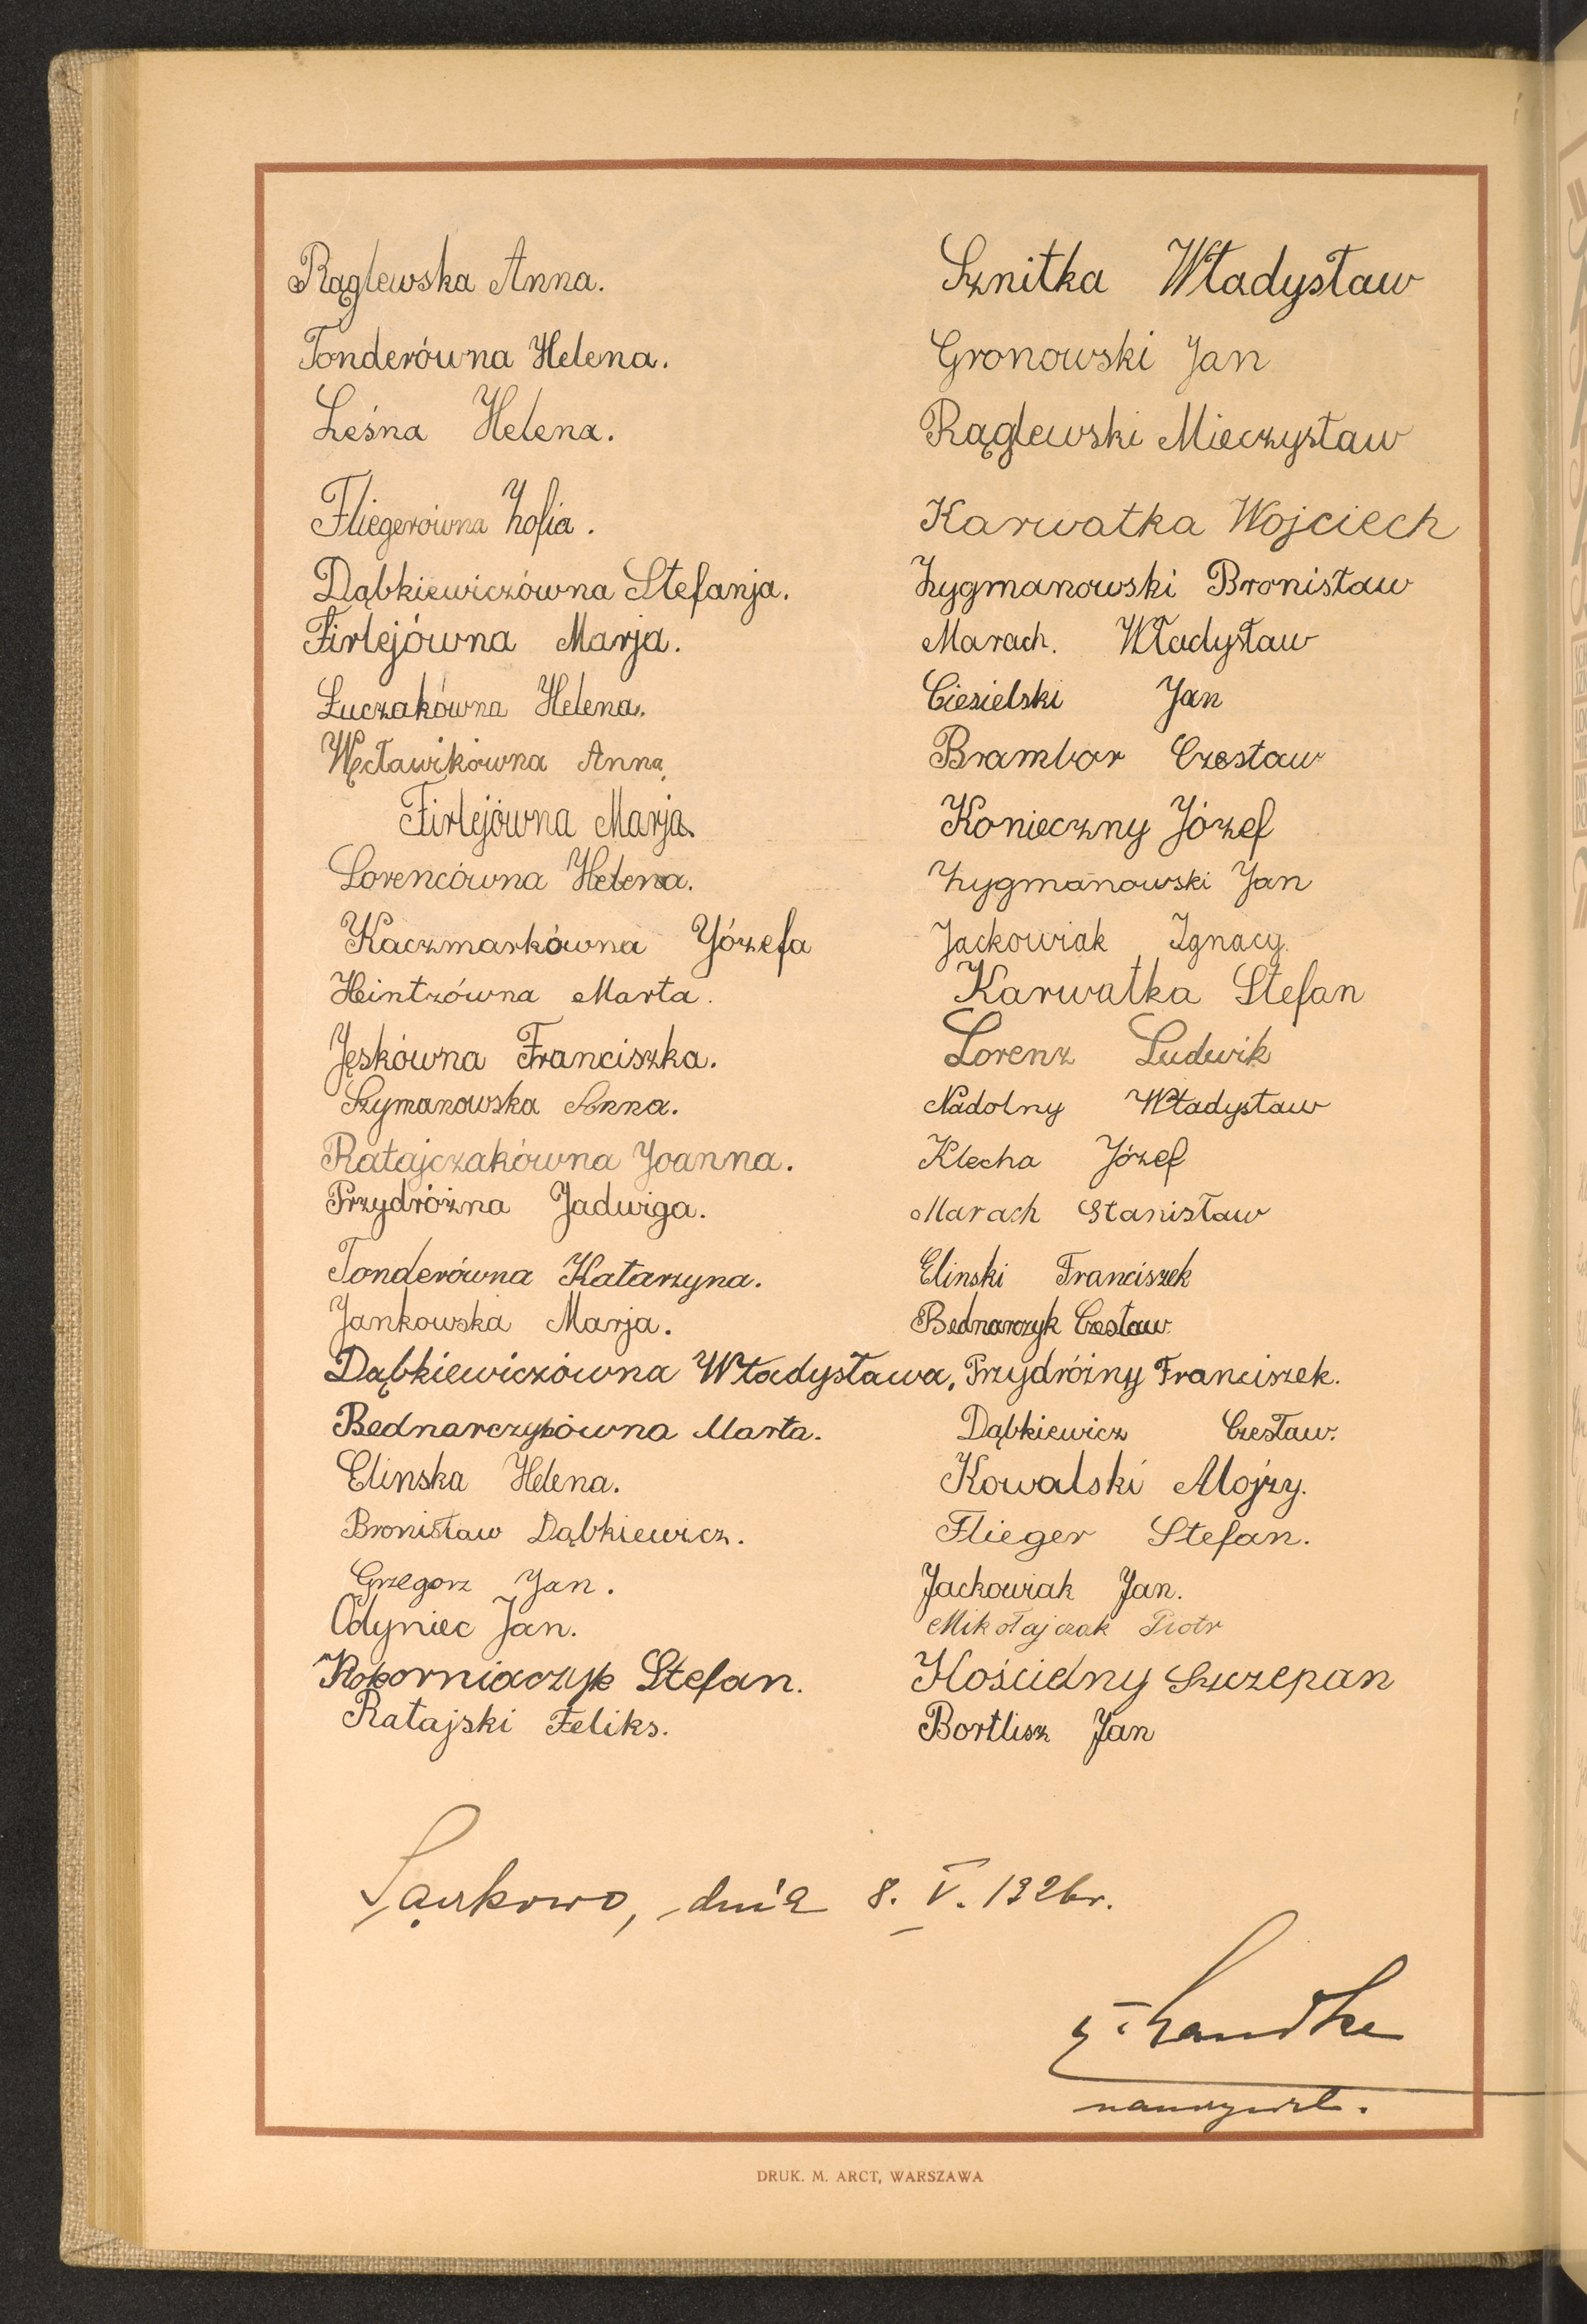 Rąglewska Anna.
Tonderówna Helena.
Leśna Helena.
Fliegerówna Zofia.
Dąbkiewiczówna Stefanja.
Firlejówna Marja.
Łuczakówna Helena.
Węcławikówna Anna.
Firlejówna Marja.
Lorencówna Helena.
Kaczmarkówna Józefa
Heintzówna Marta.
Jęskówna Franciszka.
Szymanowska Anna.
Ratajczakówna Joanna.
Przydróżna Jadwiga.
Tonderówna Katarzyna.
Jankowska Marja.
Dąbkiewiczówna Władysława,
Bednarczykówna Marta.
Elinska Helena.
Bronisław Dąbkiewicz.
Grzegorz Jan.
Odyniec Jan.
Kokorniaczyk Stefan.
Ratajski Feliks.
Sznitka Władysław
Gronowski Jan
Rąglewski Mieczysław
Karwatka Wojciech
Zygmanowski Bronisław
Marach. Władysław
Ciesielski Jan
Brambor Czesław
Konieczny Józef
Zygmanowski Jan
Jackowiak Ignacy.
Karwatka Stefan
Lorenz Ludwik
Nadolny Władysław
Klecha Józef
Marach Stanisław
Elinski Franciszek
Bednarczyk Czesław
Przydróżny Franciszek.
Dąbkiewicz Czesław.
Kowalski Alojzy.
Flieger Stefan.
Jackowiak Jan.
Mikołajczak Piotr
Kościelny Szczepan
Bortlisz Jan
dnia 8. V. 1926r.
nauczyciel.
DRUK. M. ARCT, WARSZAWA